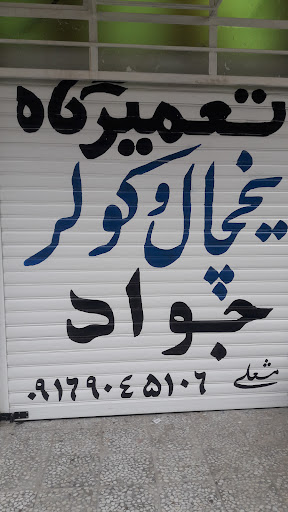 تعمیرگاه
یخچال و کولر
جواد
۰۹۱۶۹۰۴۵۱۰۶ مشعلی